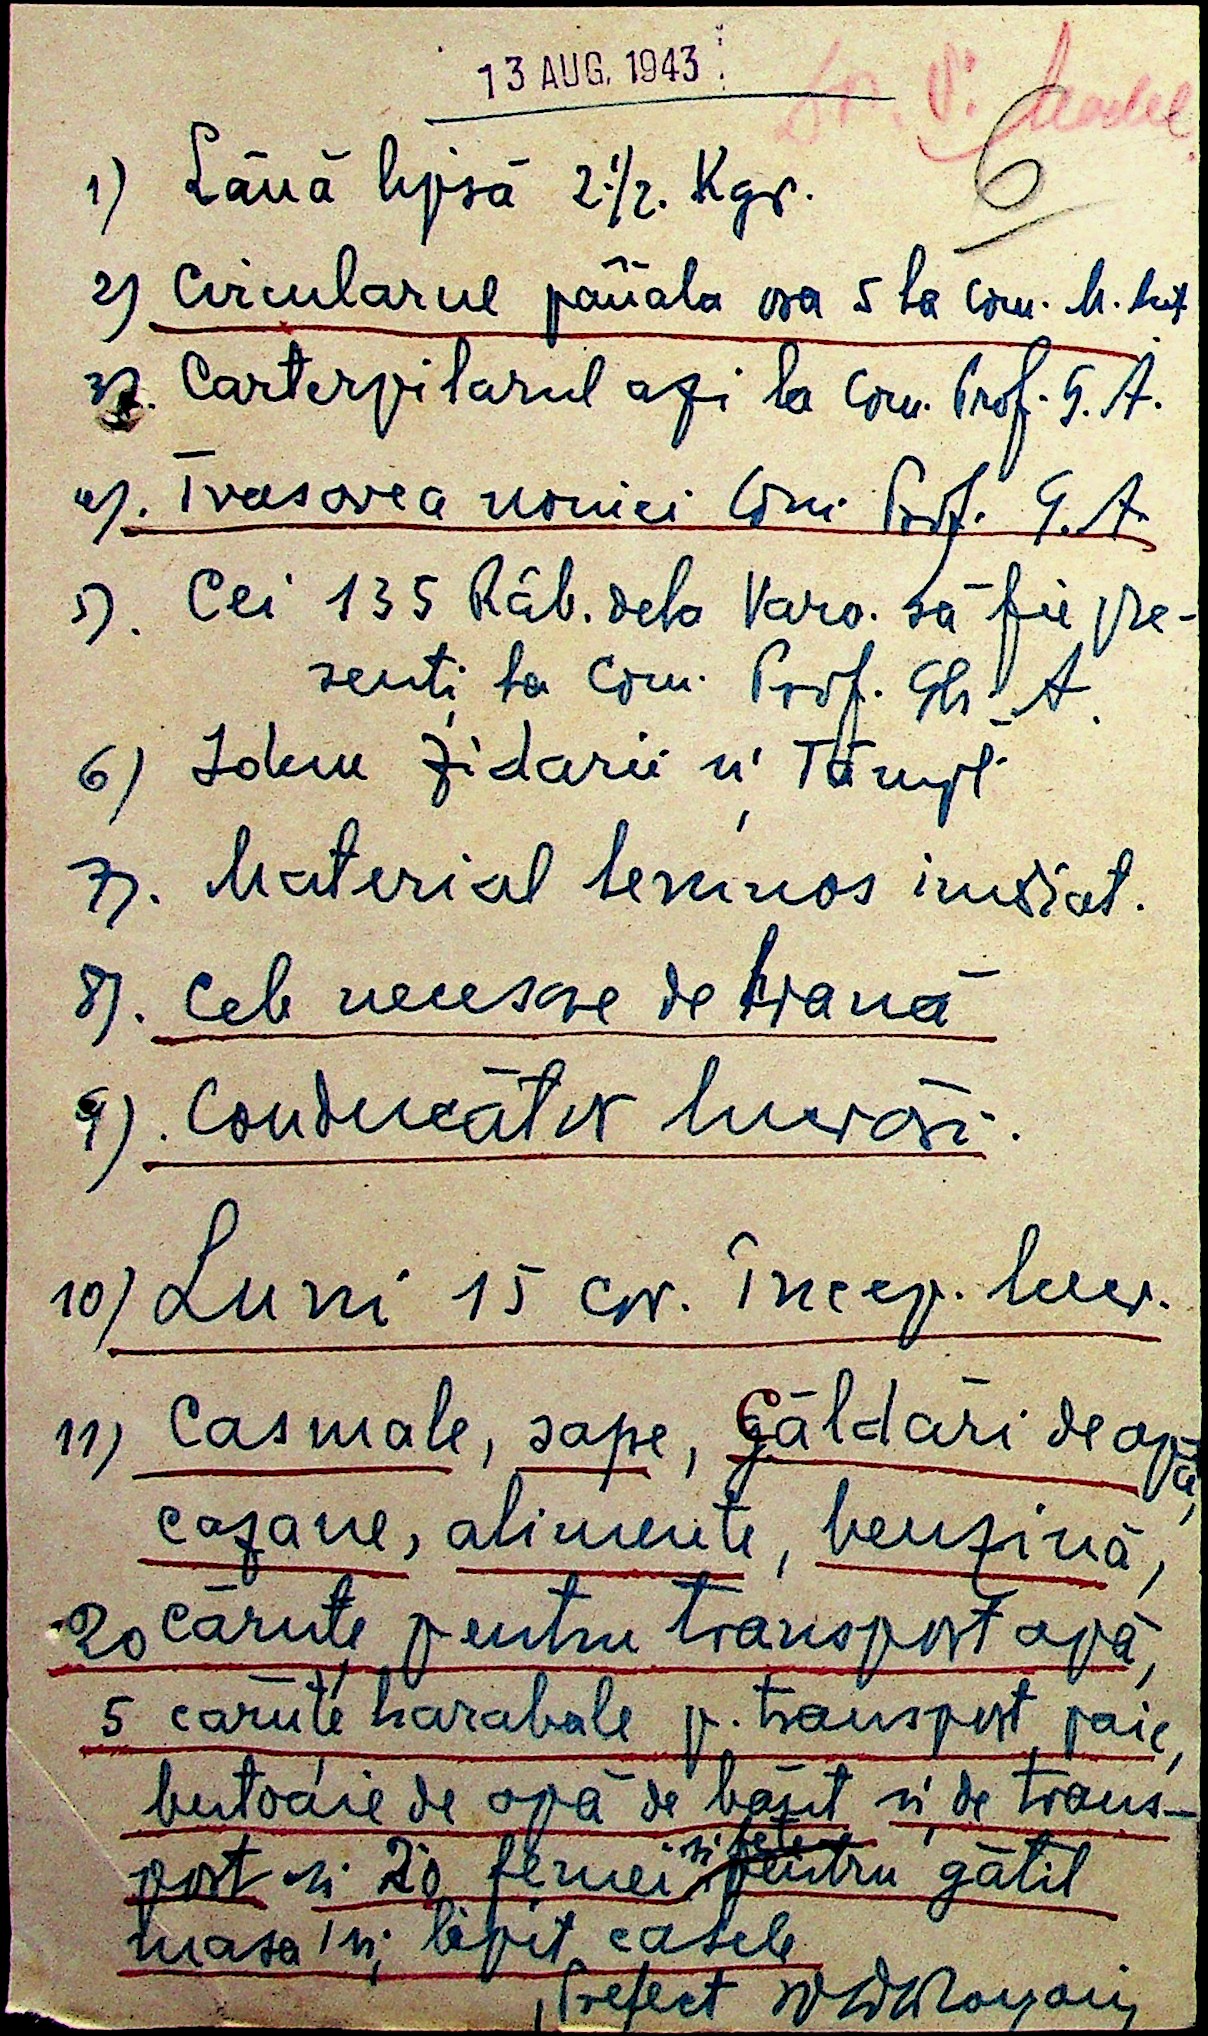 13 AUG. 1943
6
1) Lână lipsă 2 1/2. Kgr.
2) Circularul până la ora 5 la Com. M.
3). Carterpilarul azi la Com. Prof. G. A.
4). Trasarea nouiei Com. Prof. G. A.
5). Cei 135 Râb. dela Varv. să fie pre-
senți la Com. Prof. Gh. A.
6) Idem Zidarii și Tâmpl.
7). Material lemnos imediat.
8). Cele necesare de hrană
9). Conducător lucrări.
10) Luni 15 cr. încep. lucr.
11) Casmale, sape, găldări de apă,
cazane, alimente, benzină,
20 căruțe pentru transport apă,
5 căruțe harabale p. transport paie,
butoaie de apă de băut și de trans-
port și 20 femei și fete pentru gătit
masa și lipit casele
Prefect